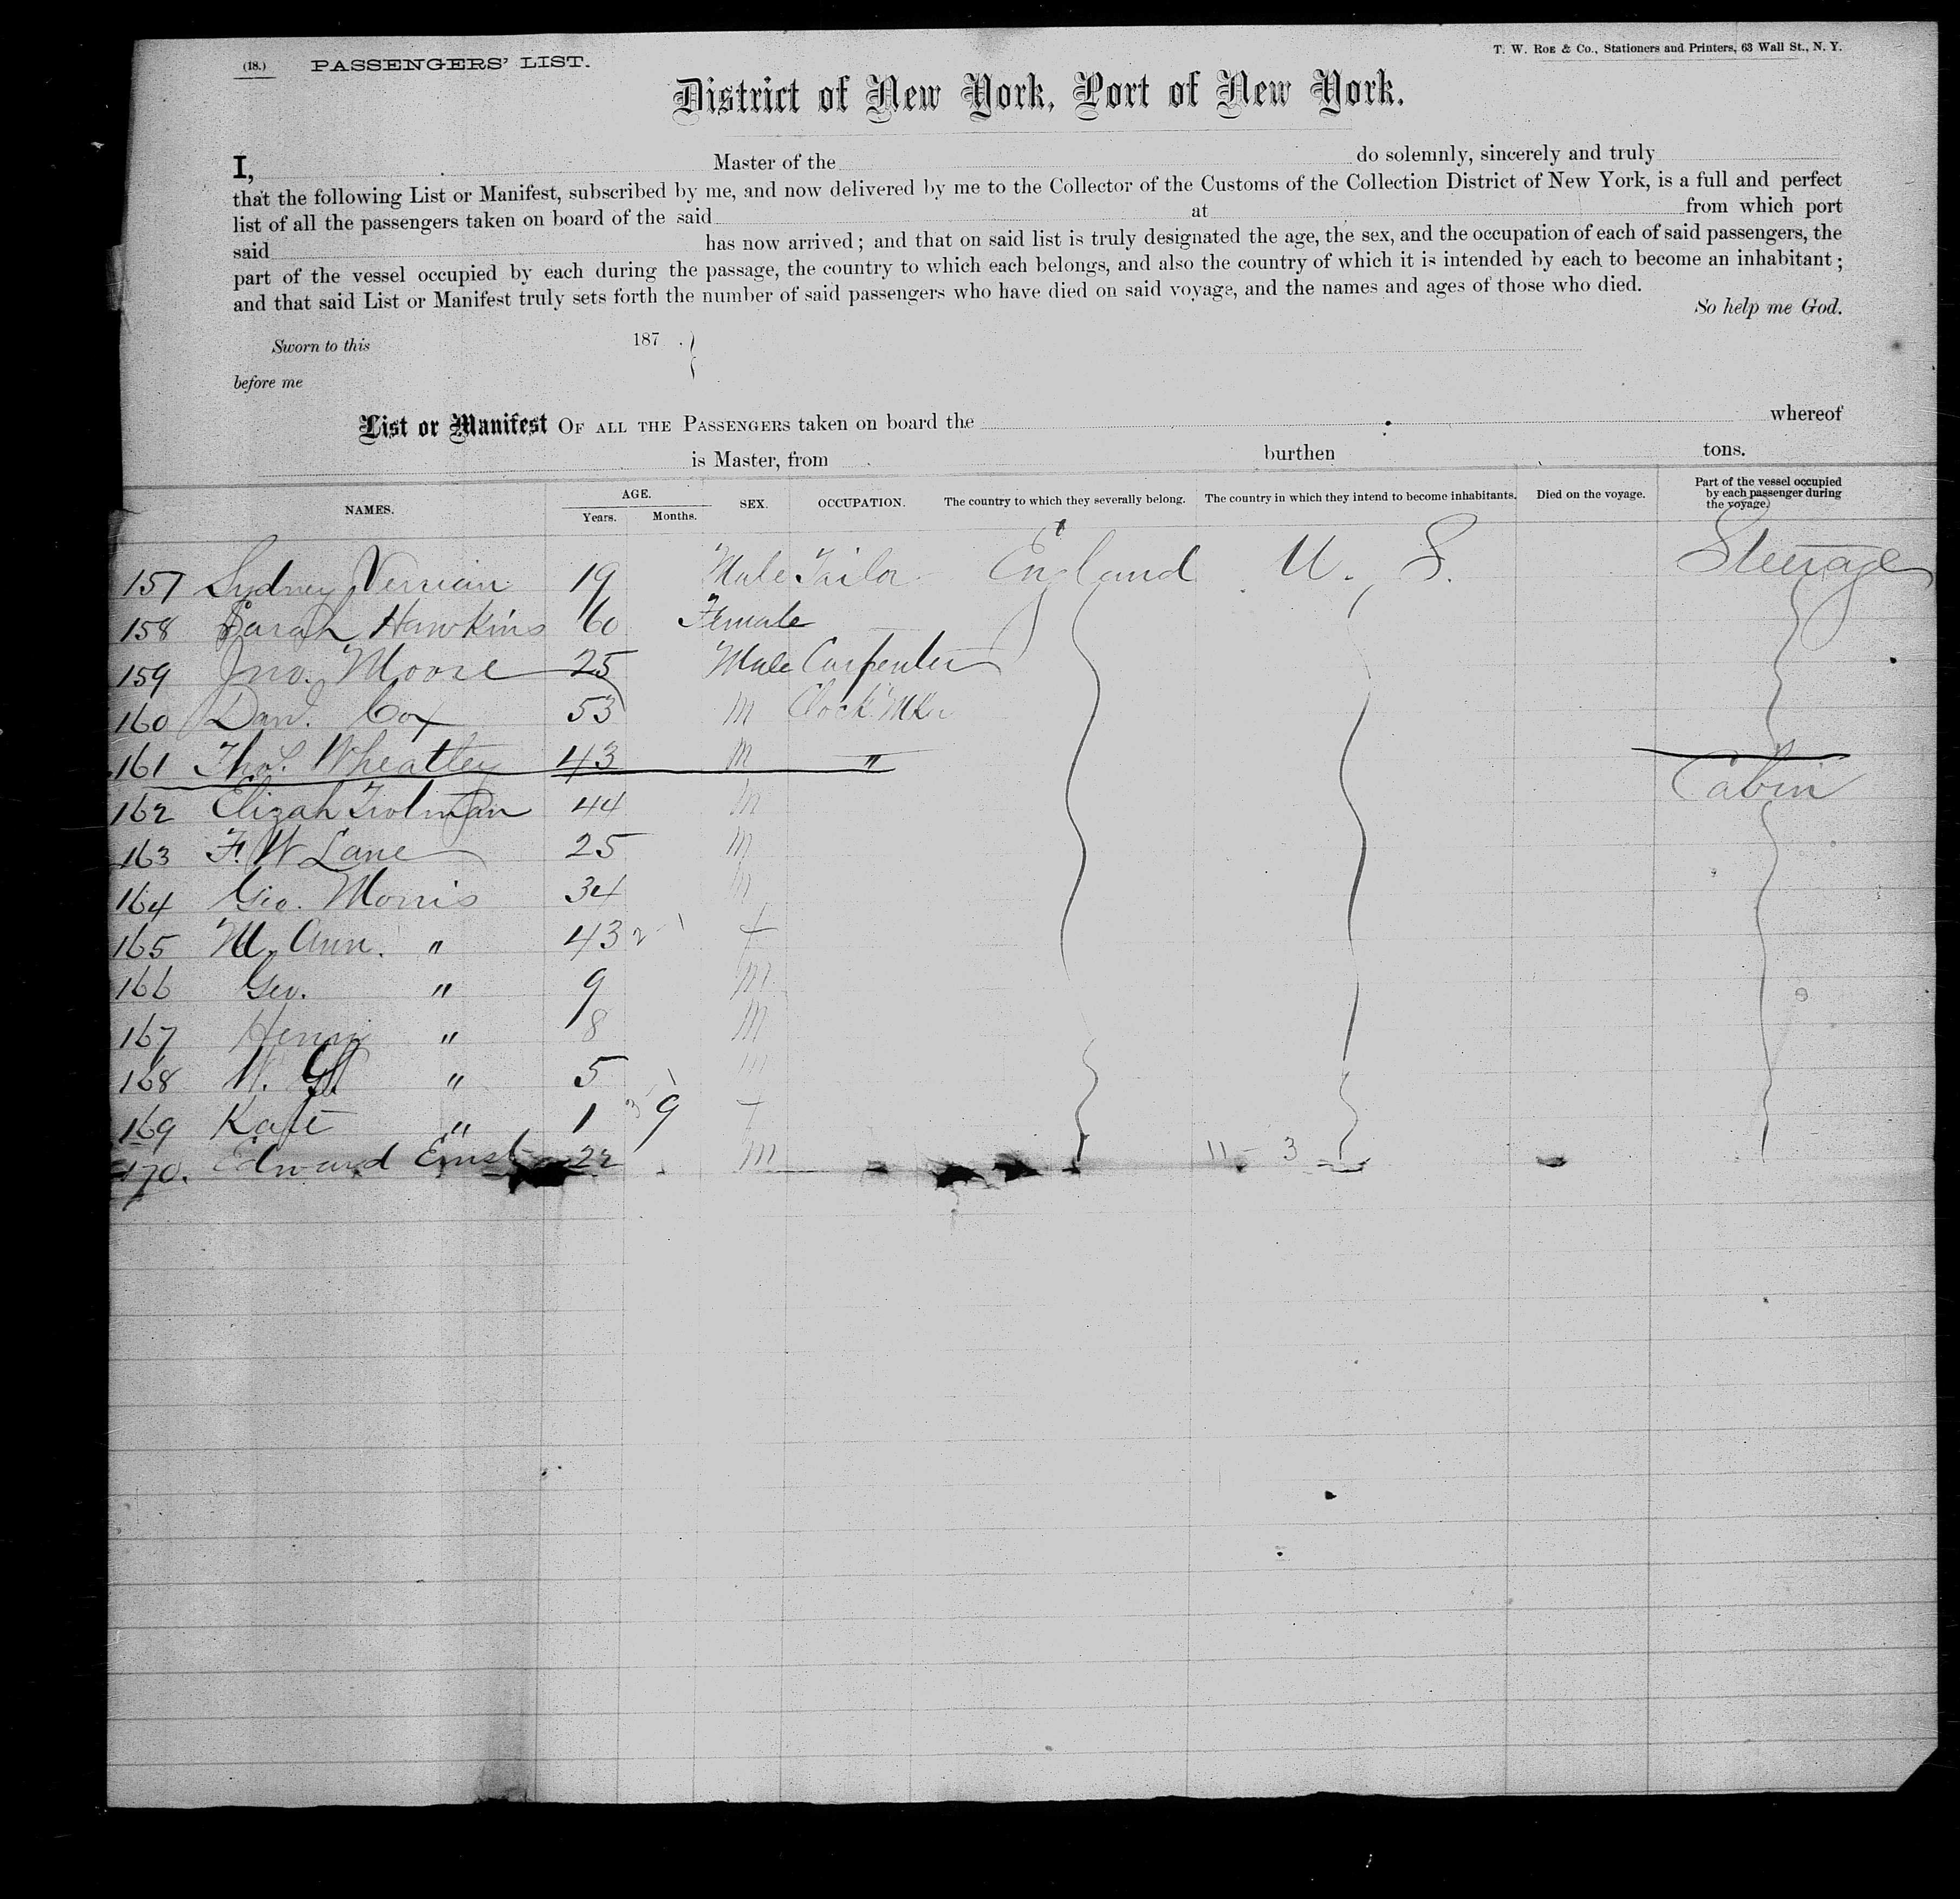 (18.) PASSENGERS' LIST.
T. W. ROE & Co., Stationers and Printers, 63 Wall St., N. Y.
District of New York, Port of New York.
I, Master of the do solemnly, sincerely and truly
that the following List or Manifest, subscribed by me, and now delivered by me to the Collector of the Customs of the Collection District of New York, is a full and perfect
list of all the passengers taken on board of the said at from which port
said has now arrived; and that on said list is truly designated the age, the sex, and the occupation of each of said passengers, the
part of the vessel occupied by each during the passage, the country to which each belongs, and also the country of which it is intended by each to become an inhabitant;
and that said List or Manifest truly sets forth the number of said passengers who have died on said voyage, and the names and ages of those who died.
So help me God.
Sworn to this 187 .
before me
List or Manifest OF ALL THE PASSENGERS taken on board the whereof
is Master, from burthen tons.
NAMES. AGE. Years. Months. SEX. OCCUPATION. The country to which they severally belong. The country in which they intend to become inhabitants. Died on the voyage. Part of the vessel occupied by each passenger during the voyage.
157 Sydney 19 Male Tailor England U. S. Steerage
158 Sarah Hawkins 60 Female
159 Jno. Moore 25 Male Carpenter
160 Danl. Cox 53 m Clock Mkr
161 Thos. Wheatley 43 m "
162 Elizah Trolman 44 m Cabin
163 F. W Lane 25 m
164 Geo. Morris 34 m
165 M. Ann. " 43 f
166 Geo. " 9 m
167 Henry " 8 m
168 W. " 5 m
169 Kate " 1 9 f
170. Edward Ernst 22 m 11 - 3